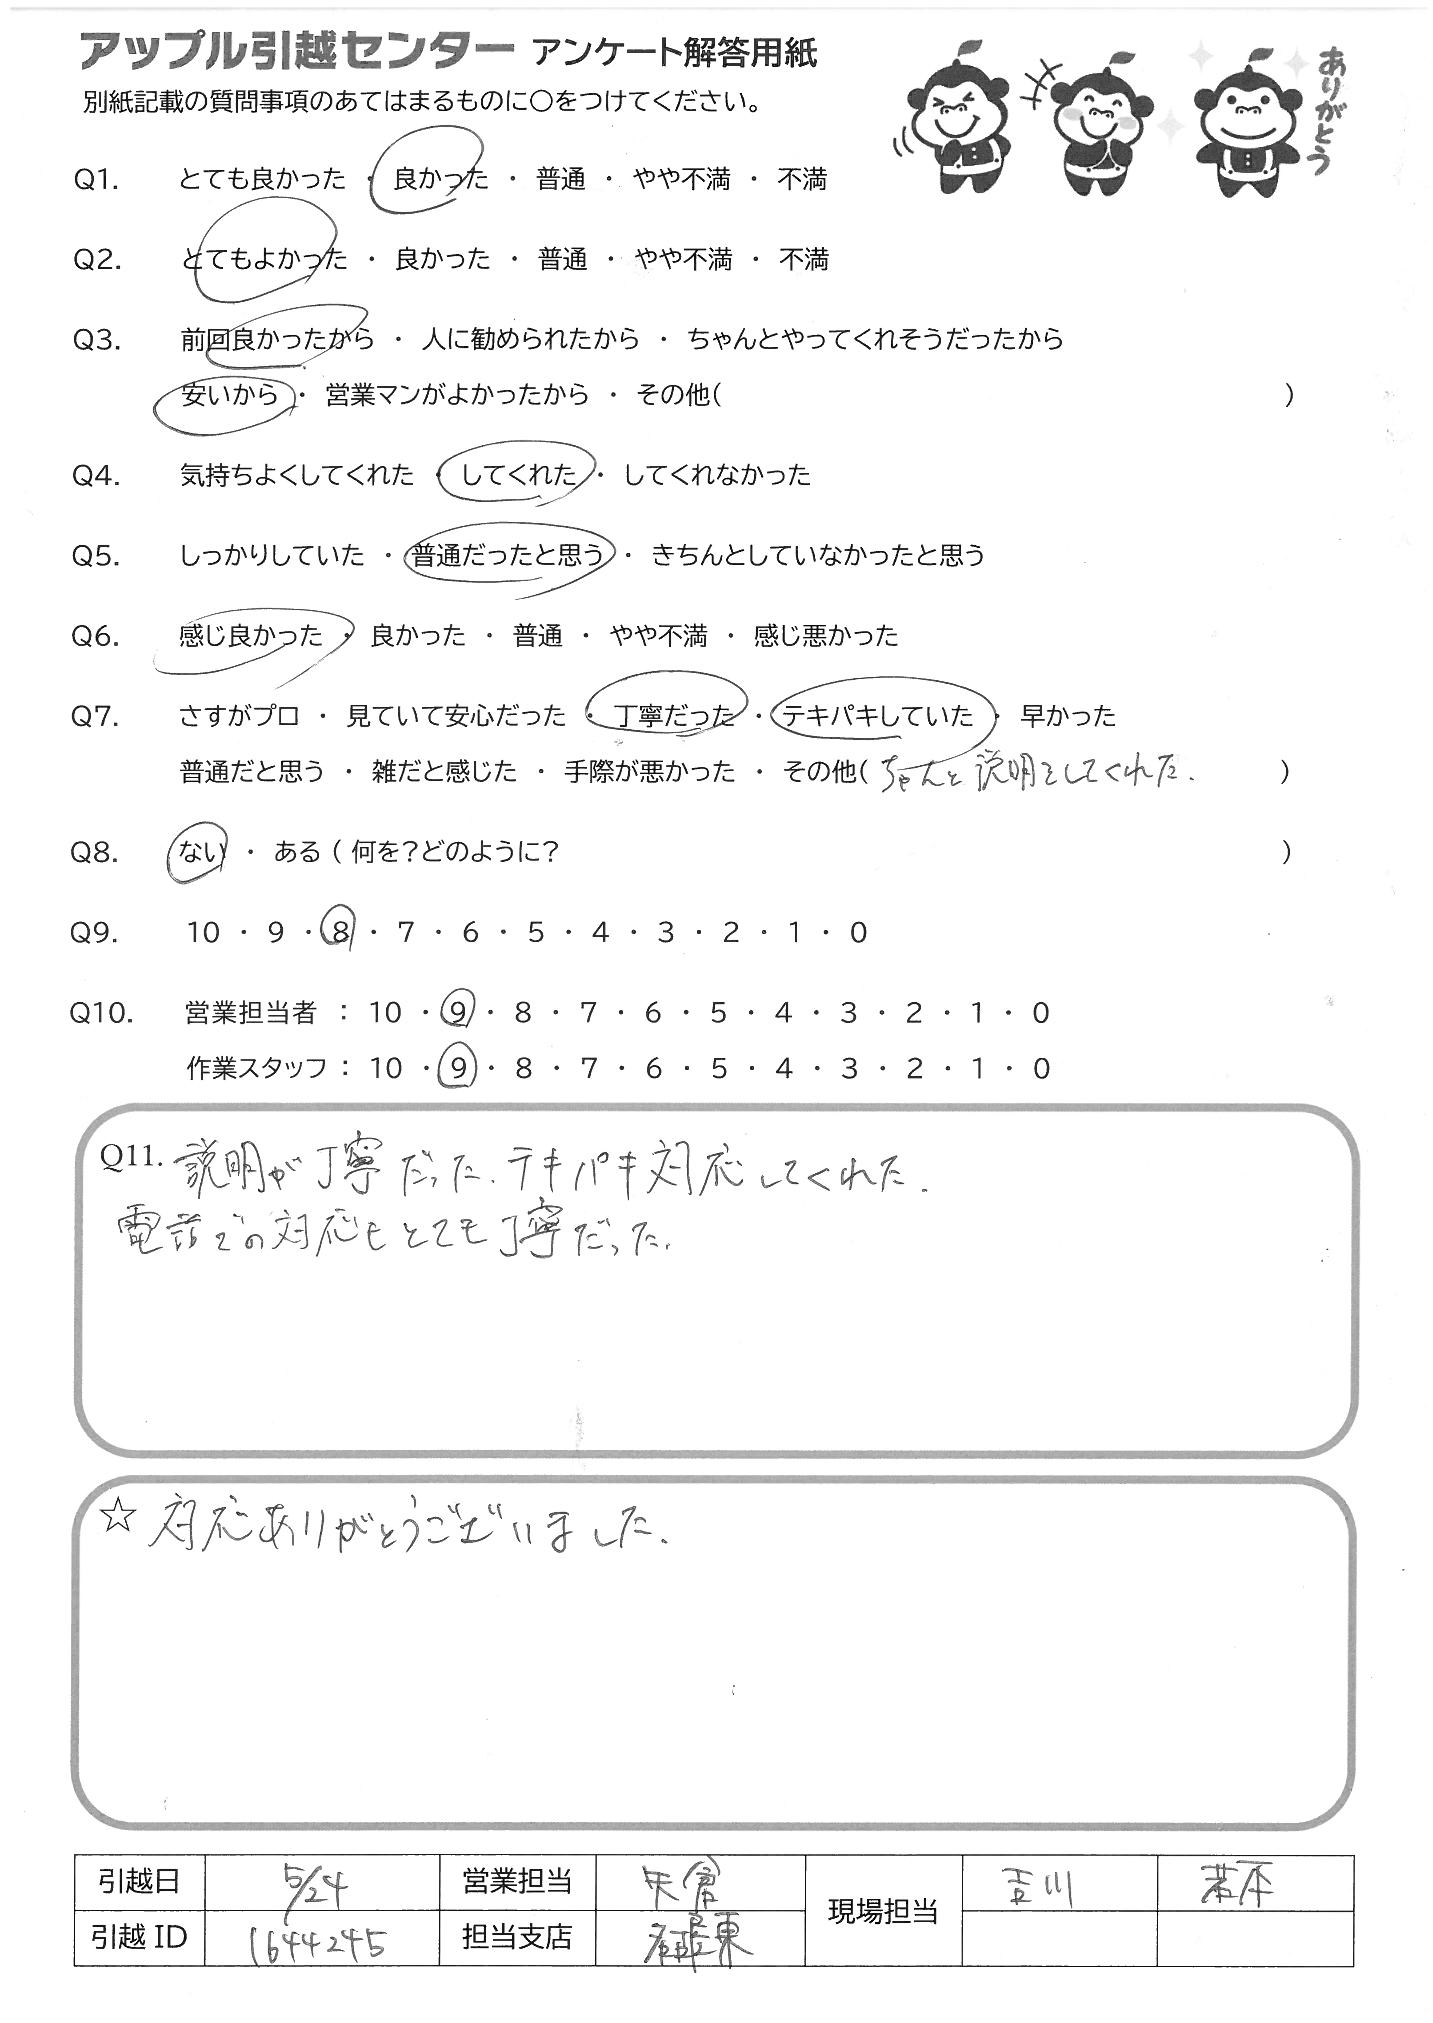 アップル引越センター アンケート解答用紙
ありがとう
別紙記載の質問事項のあてはまるものに○をつけてください。
Q1. とても良かった ・ 良かった ・ 普通 ・ やや不満 ・ 不満
Q2. とてもよかった ・ 良かった ・ 普通 ・ やや不満 ・ 不満
Q3. 前回良かったから ・ 人に勧められたから ・ ちゃんとやってくれそうだったから
安いから ・ 営業マンがよかったから ・ その他( )
Q4. 気持ちよくしてくれた ・ してくれた ・ してくれなかった
Q5. しっかりしていた ・ 普通だったと思う ・ きちんとしていなかったと思う
Q6. 感じ良かった ・ 良かった ・ 普通 ・ やや不満 ・ 感じ悪かった
Q7. さすがプロ ・ 見ていて安心だった ・ 丁寧だった ・ テキパキしていた ・ 早かった
普通だと思う ・ 雑だと感じた ・ 手際が悪かった ・ その他( ちゃんと説明をしてくれた. )
Q8. ない ・ ある ( 何を?どのように? )
Q9. 10 ・ 9 ・ 8 ・ 7 ・ 6 ・ 5 ・ 4 ・ 3 ・ 2 ・ 1 ・ 0
Q10. 営業担当者 : 10 ・ 9 ・ 8 ・ 7 ・ 6 ・ 5 ・ 4 ・ 3 ・ 2 ・ 1 ・ 0
作業スタッフ : 10 ・ 9 ・ 8 ・ 7 ・ 6 ・ 5 ・ 4 ・ 3 ・ 2 ・ 1 ・ 0
Q11. 説明が丁寧だった. テキパキ対応してくれた.
電話での対応もとても丁寧だった.
☆ 対応ありがとうございました.
引越日 5/24 営業担当 矢倉 現場担当 吉川
引越 ID 1644245 担当支店